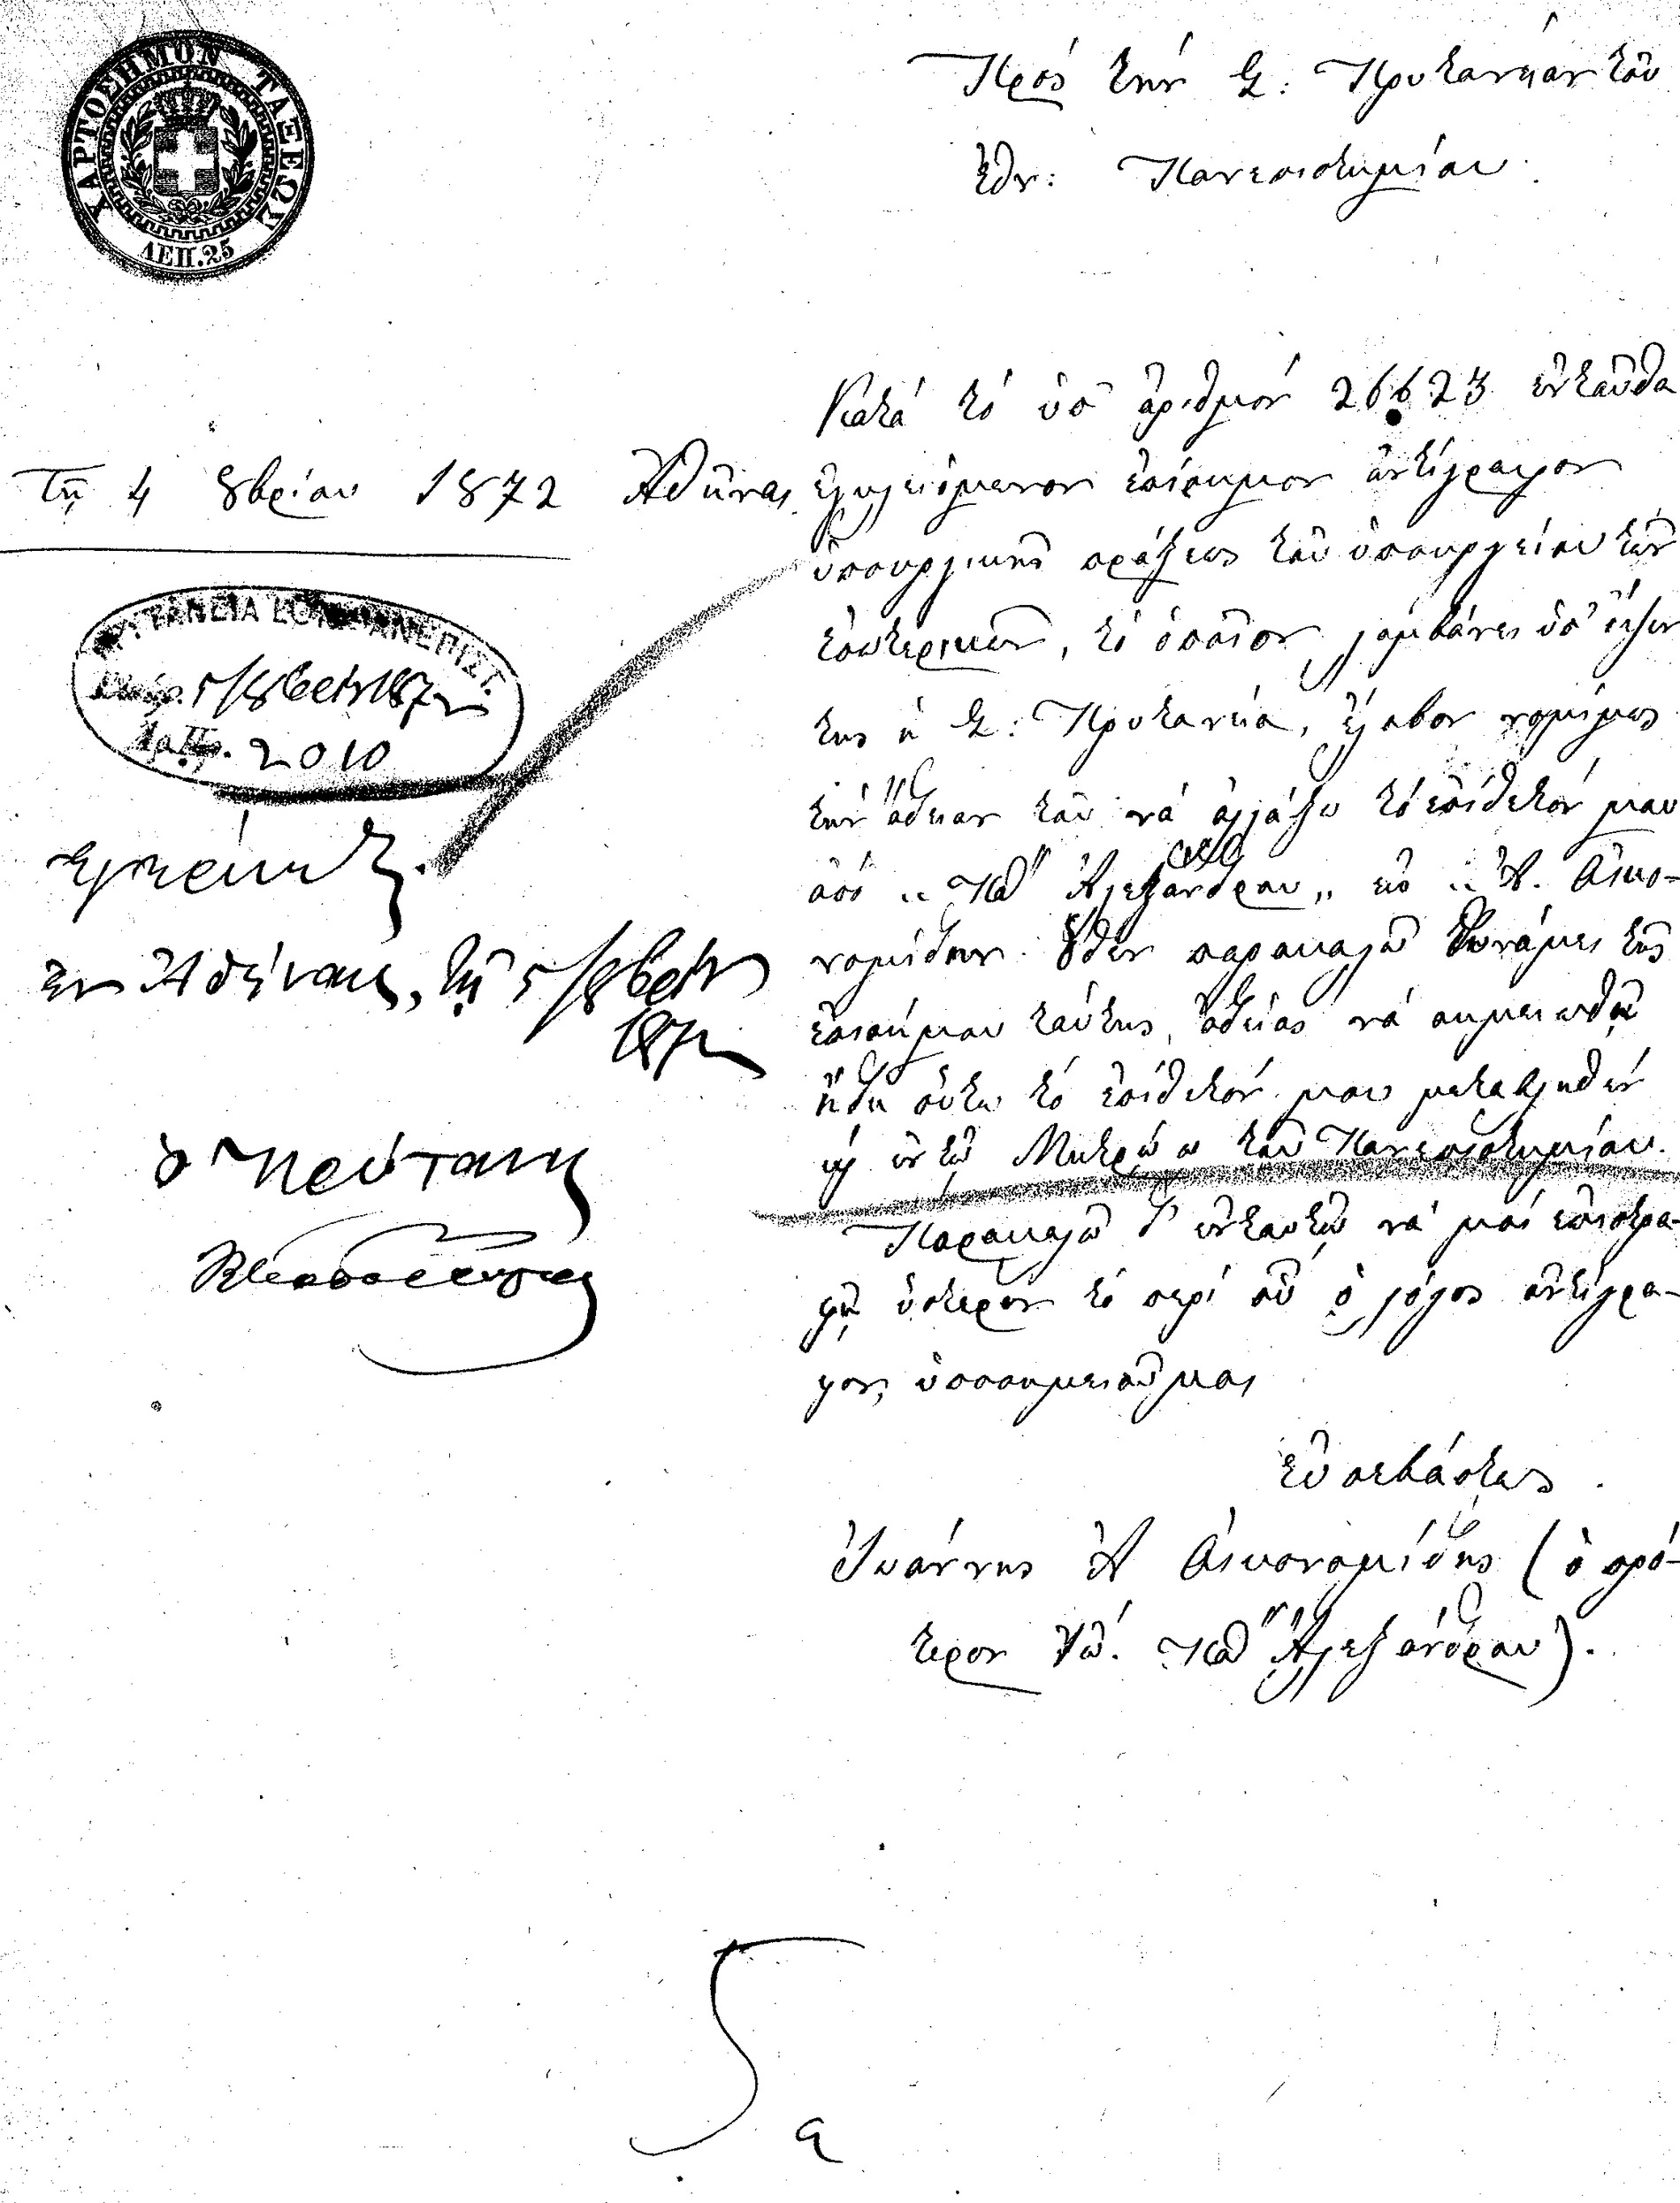 ΧΑΡΤΟΣΗΜΟΝ ΤΑΞΕΩΣ
ΛΕΠ.25
Πρὸς τὴν Σ: Πρυτανείαν τοῦ
Ἐθν: Πανεπιστημίου.
Τῇ 4 8βρίου 1872 Ἀθῆναι
ΠΡΥΤΑΝΕΙΑ ΕΘΝ. ΠΑΝΕΠΙΣΤ.
5/8βρίου 1872
2010
Ἐγκρίνεται.
Ἐν Ἀθήναις, τῇ 5/8βρίου
1872
ὁ Πρύτανις
Κατὰ τὸ ὑπ' ἀριθμὸν 26623 ἐνταῦθα
ἐγκλειόμενον ἐπίσημον ἀντίγραφον
ὑπουργικῆς πράξεως τοῦ ὑπουργείου τῶν
ἐσωτερικῶν, τὸ ὁποῖον λαμβάνει ὑπ' ὄψιν
της ἡ Σ: Πρυτανεία, ἔλαβον νομίμως
τὴν ἄδειαν τοῦ νὰ ἀλλάξω τὸ ἐπίθετόν μου
ἀπὸ „ Πα Ἀλεξάνδρου „ εἰς „ Α. Οἰκο-
νομίδην. Ὅθεν παρακαλῶ δυνάμει τῆς
ἐπισήμου ταύτης ἀδείας νὰ σημειωθῇ
ἤδη οὕτω τὸ ἐπίθετόν μου μεταβληθὲν
ἐν τῷ Μητρώῳ τοῦ Πανεπιστημίου.
Παρακαλῶ δ' ἐνταυτῷ νὰ μοὶ ἐπιστρα-
φῇ ὕστερον τὸ περὶ οὗ ὁ λόγος ἀντίγρα-
φον, ὑποσημειοῦμαι
εὐσεβάστως
Ἰωάννης Α Οἰκονομίδης (ὁ πρό-
τερον Ἰω. Πα Ἀλεξάνδρου).